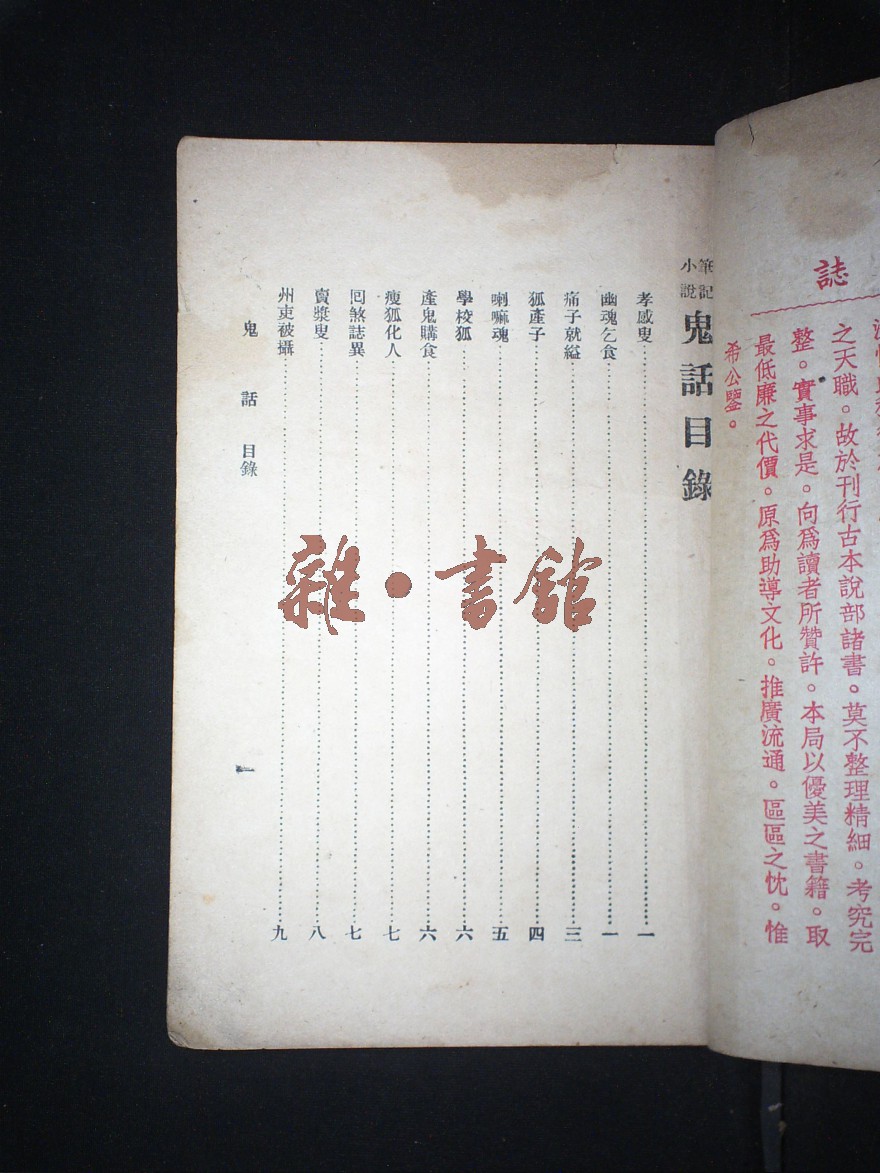 誌
之天職。故於刊行古本說部諸書。莫不整理精細。考究完
整。實事求是。向爲讀者所贊許。本局以優美之書籍。取
最低廉之代價。原爲助導文化。推廣流通。區區之忱。惟
希公鑒。
筆記小說 鬼話目錄
孝感叟……一
幽魂乞食……一
痛子就縊……三
狐產子……四
喇嘛魂……五
學校狐……六
產鬼購食……六
瘦狐化人……七
囘煞誌異……七
賣漿叟……八
州吏被攝……九
鬼話 目錄 一
雜·書館